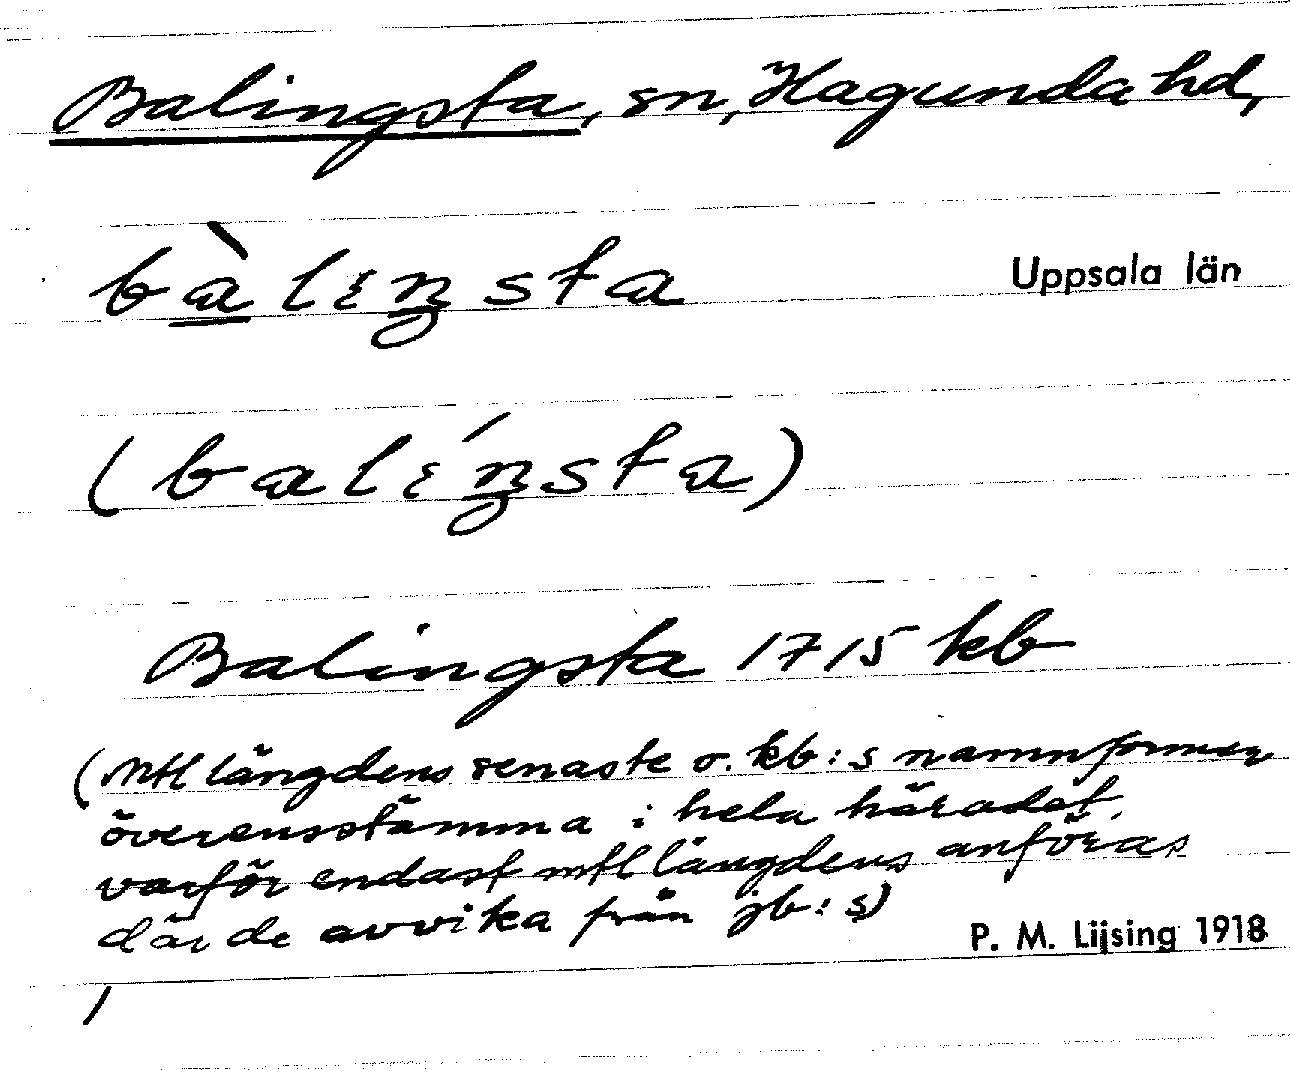 Balingsta, sn, Hagunda hd,
bàlıŋsta
Uppsala län
(balıństa)
Balingsta 1715 kb
(Mtl längdens senaste o. kb:s namnformer
överensstämma i hela häradet,
varför endast mtl längdens anföras
där de avvika från jb:s)
P. M. Lijsing 1918
/